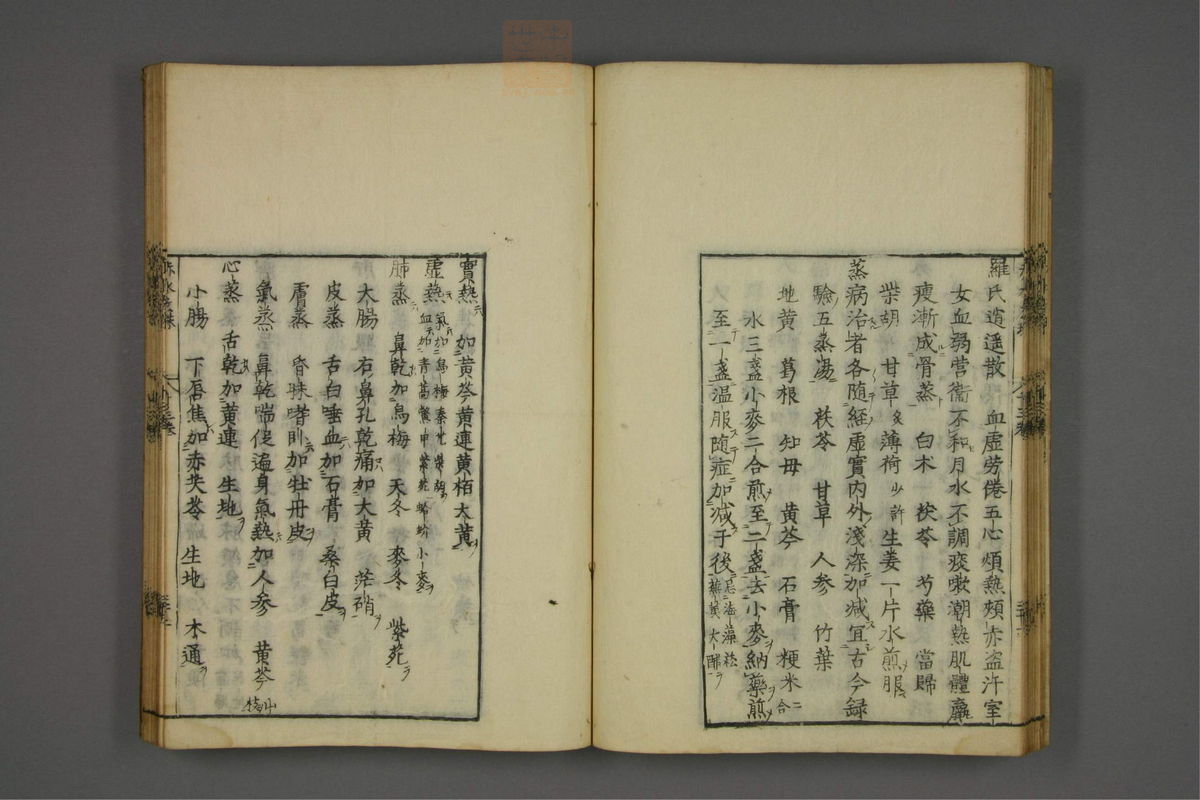 羅氏逍遥散　血虛劳倦五心煩熱頰赤盗汗室
女血弱営衞不和月水不調痰嗽潮熱肌體羸
瘦漸成骨蒸　白朮　茯苓　芍藥　當歸
柴胡　甘草炙　薄荷少許　生姜一片水煎服
蒸病治者各随経虛實内外淺深加减宜古今録
驗五蒸湯　茯苓　甘草　人参　竹葉
地黄　葛根　知母　黄芩　石膏　粳米二合
水三盞小麥二合煎至二盞去小麥納藥煎
至一盞温服随症加减于後忌海藻菘蕪荑大醋
實熱　加黄芩黄連黄栢大黄
虛熱　氣加烏梅秦艽柴胡蛤蚧小麥
血加青蒿鱉甲紫苑
肺蒸　鼻乾加烏梅　天冬　麥冬　紫苑
大腸　右鼻孔乾痛加大黄　芒硝
皮蒸　舌白唾血加石膏　桑白皮
膚蒸　昏昧嗜卧加牡丹皮
氣蒸　鼻乾喘促遍身氣熱加人参　黄芩　山梔
心蒸　舌乾加黄連　生地
小腸　下唇焦加赤茯苓　生地　木通